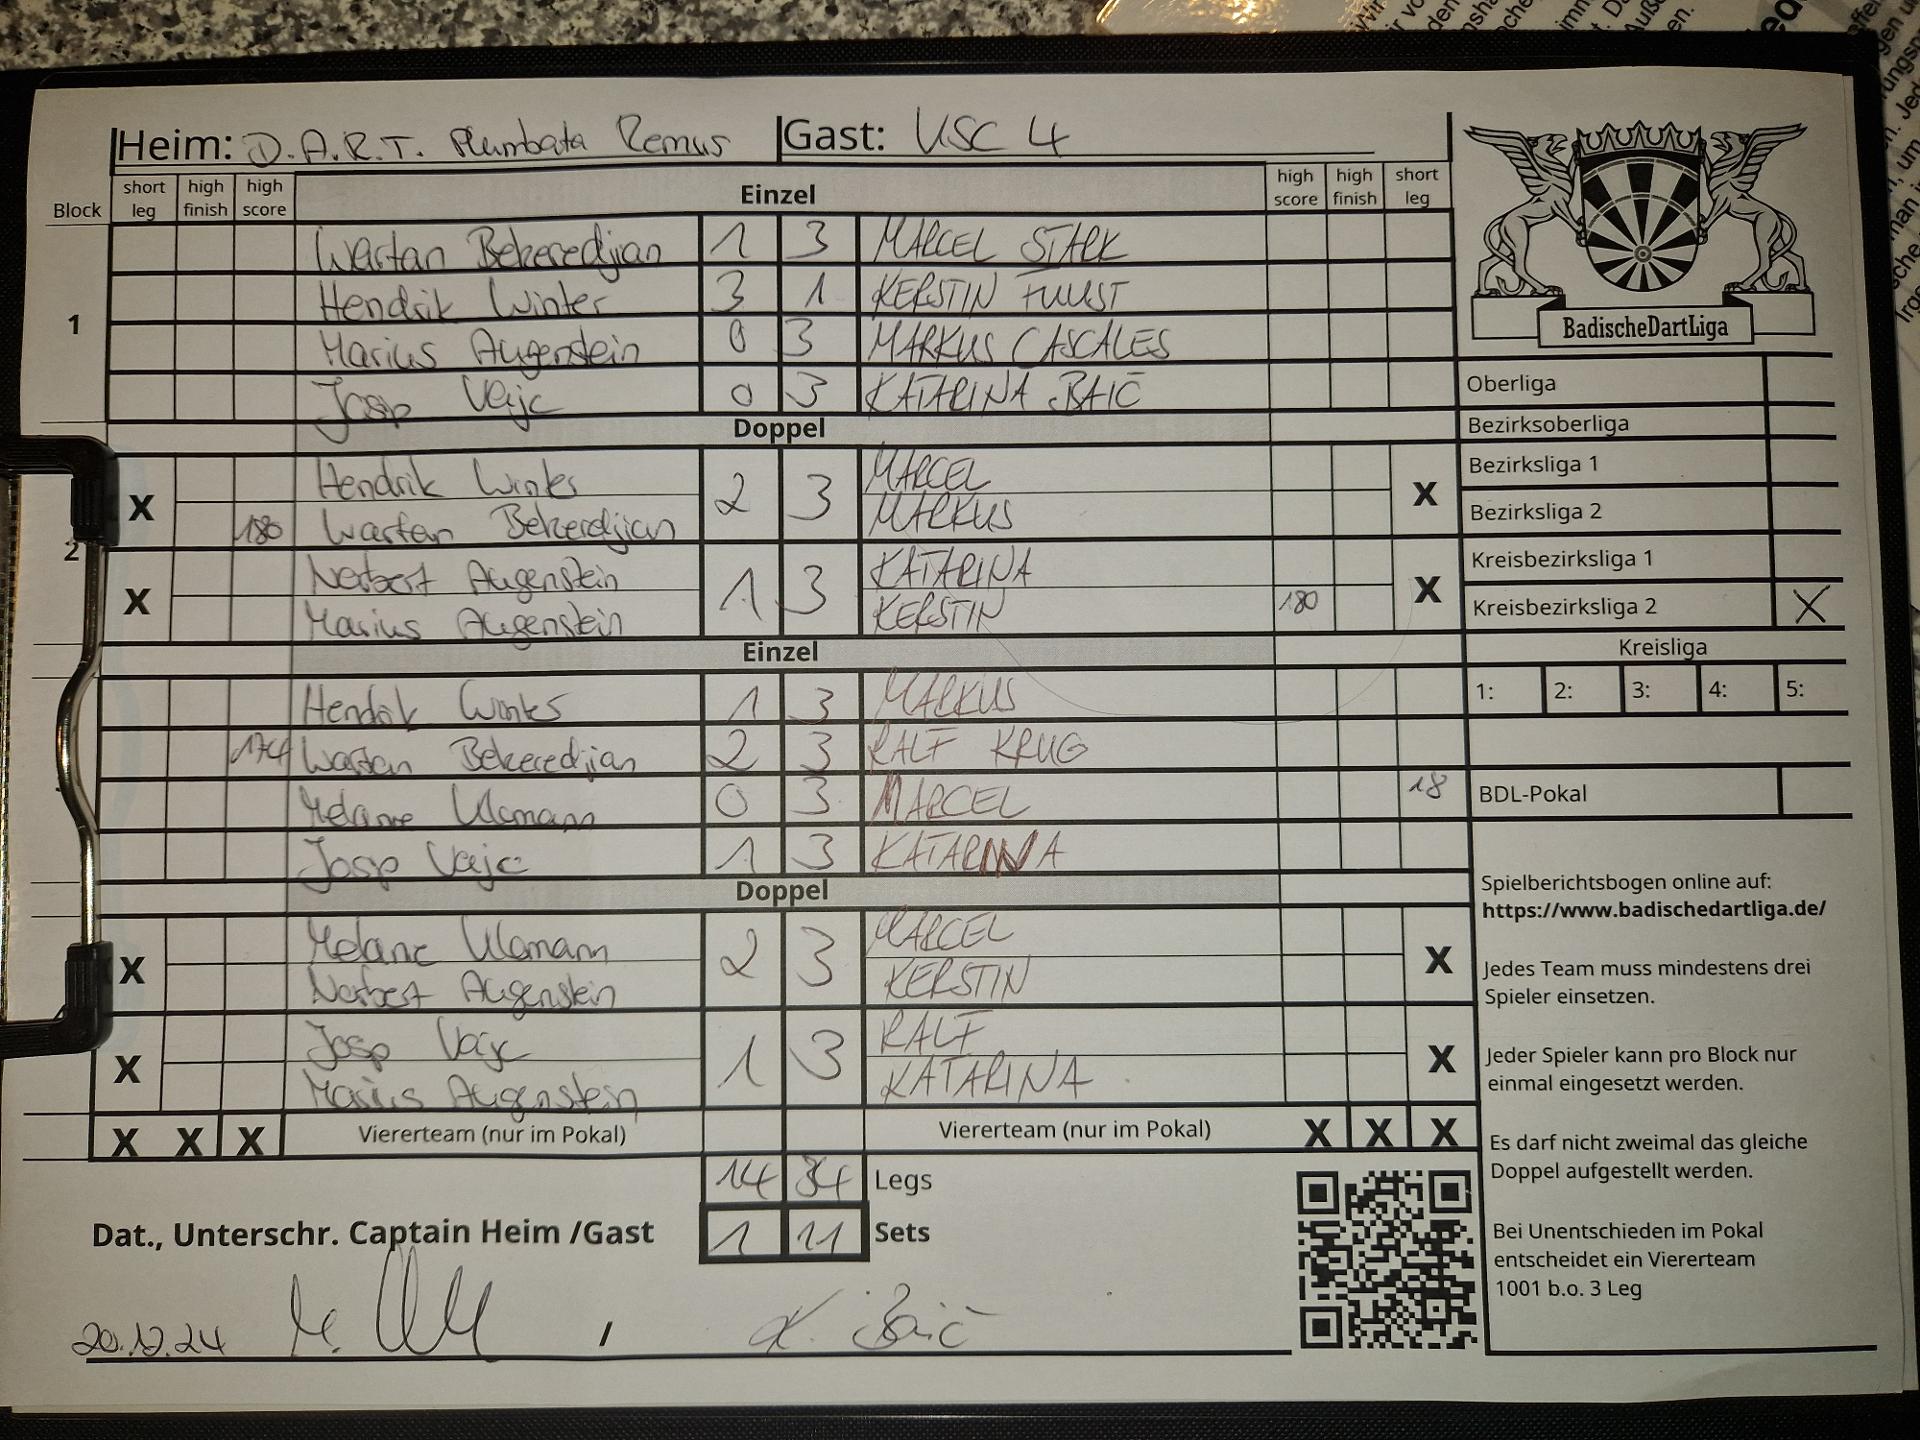 Heim: D.A.R.T. Plumbata Remus Gast: USC 4
Block short leg high finish high score Einzel high score high finish short leg
1
Wartan Bekeredjian 1 3 MARCEL STARK
Hendrik Winter 3 1 KERSTIN
Marius Augenstein 0 3 MARKUS CASCALES
Josip Vajc 0 3 KATARINA BAIĆ
Doppel
2
X Hendrik Winter 2 3 MARCEL X
180 Wartan Bekeredjian MARKUS
X Norbert Augenstein 1 3 KATARINA X
Marius Augenstein KERSTIN 180
Einzel
Hendrik Winter 1 3 MARKUS
174 Wartan Bekeredjian 2 3 RALF KRUG
Melanie 0 3 MARCEL 18
Josip Vajc 1 3 KATARINA
Doppel
X Melanie 2 3 MARCEL X
Norbert Augenstein KERSTIN
X Josip Vajc 1 3 RALF X
Marius Augenstein KATARINA
X X X Viererteam (nur im Pokal) Viererteam (nur im Pokal) X X X
14 34 Legs
1 11 Sets
Dat., Unterschr. Captain Heim /Gast
20.12.24 / K. Baić
BadischeDartLiga
Oberliga
Bezirksoberliga
Bezirksliga 1
Bezirksliga 2
Kreisbezirksliga 1
Kreisbezirksliga 2 X
Kreisliga
1: 2: 3: 4: 5:
BDL-Pokal
Spielberichtsbogen online auf:
https://www.badischedartliga.de/
Jedes Team muss mindestens drei
Spieler einsetzen.
Jeder Spieler kann pro Block nur
einmal eingesetzt werden.
Es darf nicht zweimal das gleiche
Doppel aufgestellt werden.
Bei Unentschieden im Pokal
entscheidet ein Viererteam
1001 b.o. 3 Leg